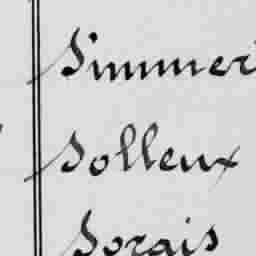 Simmer
Solleux
Sorais